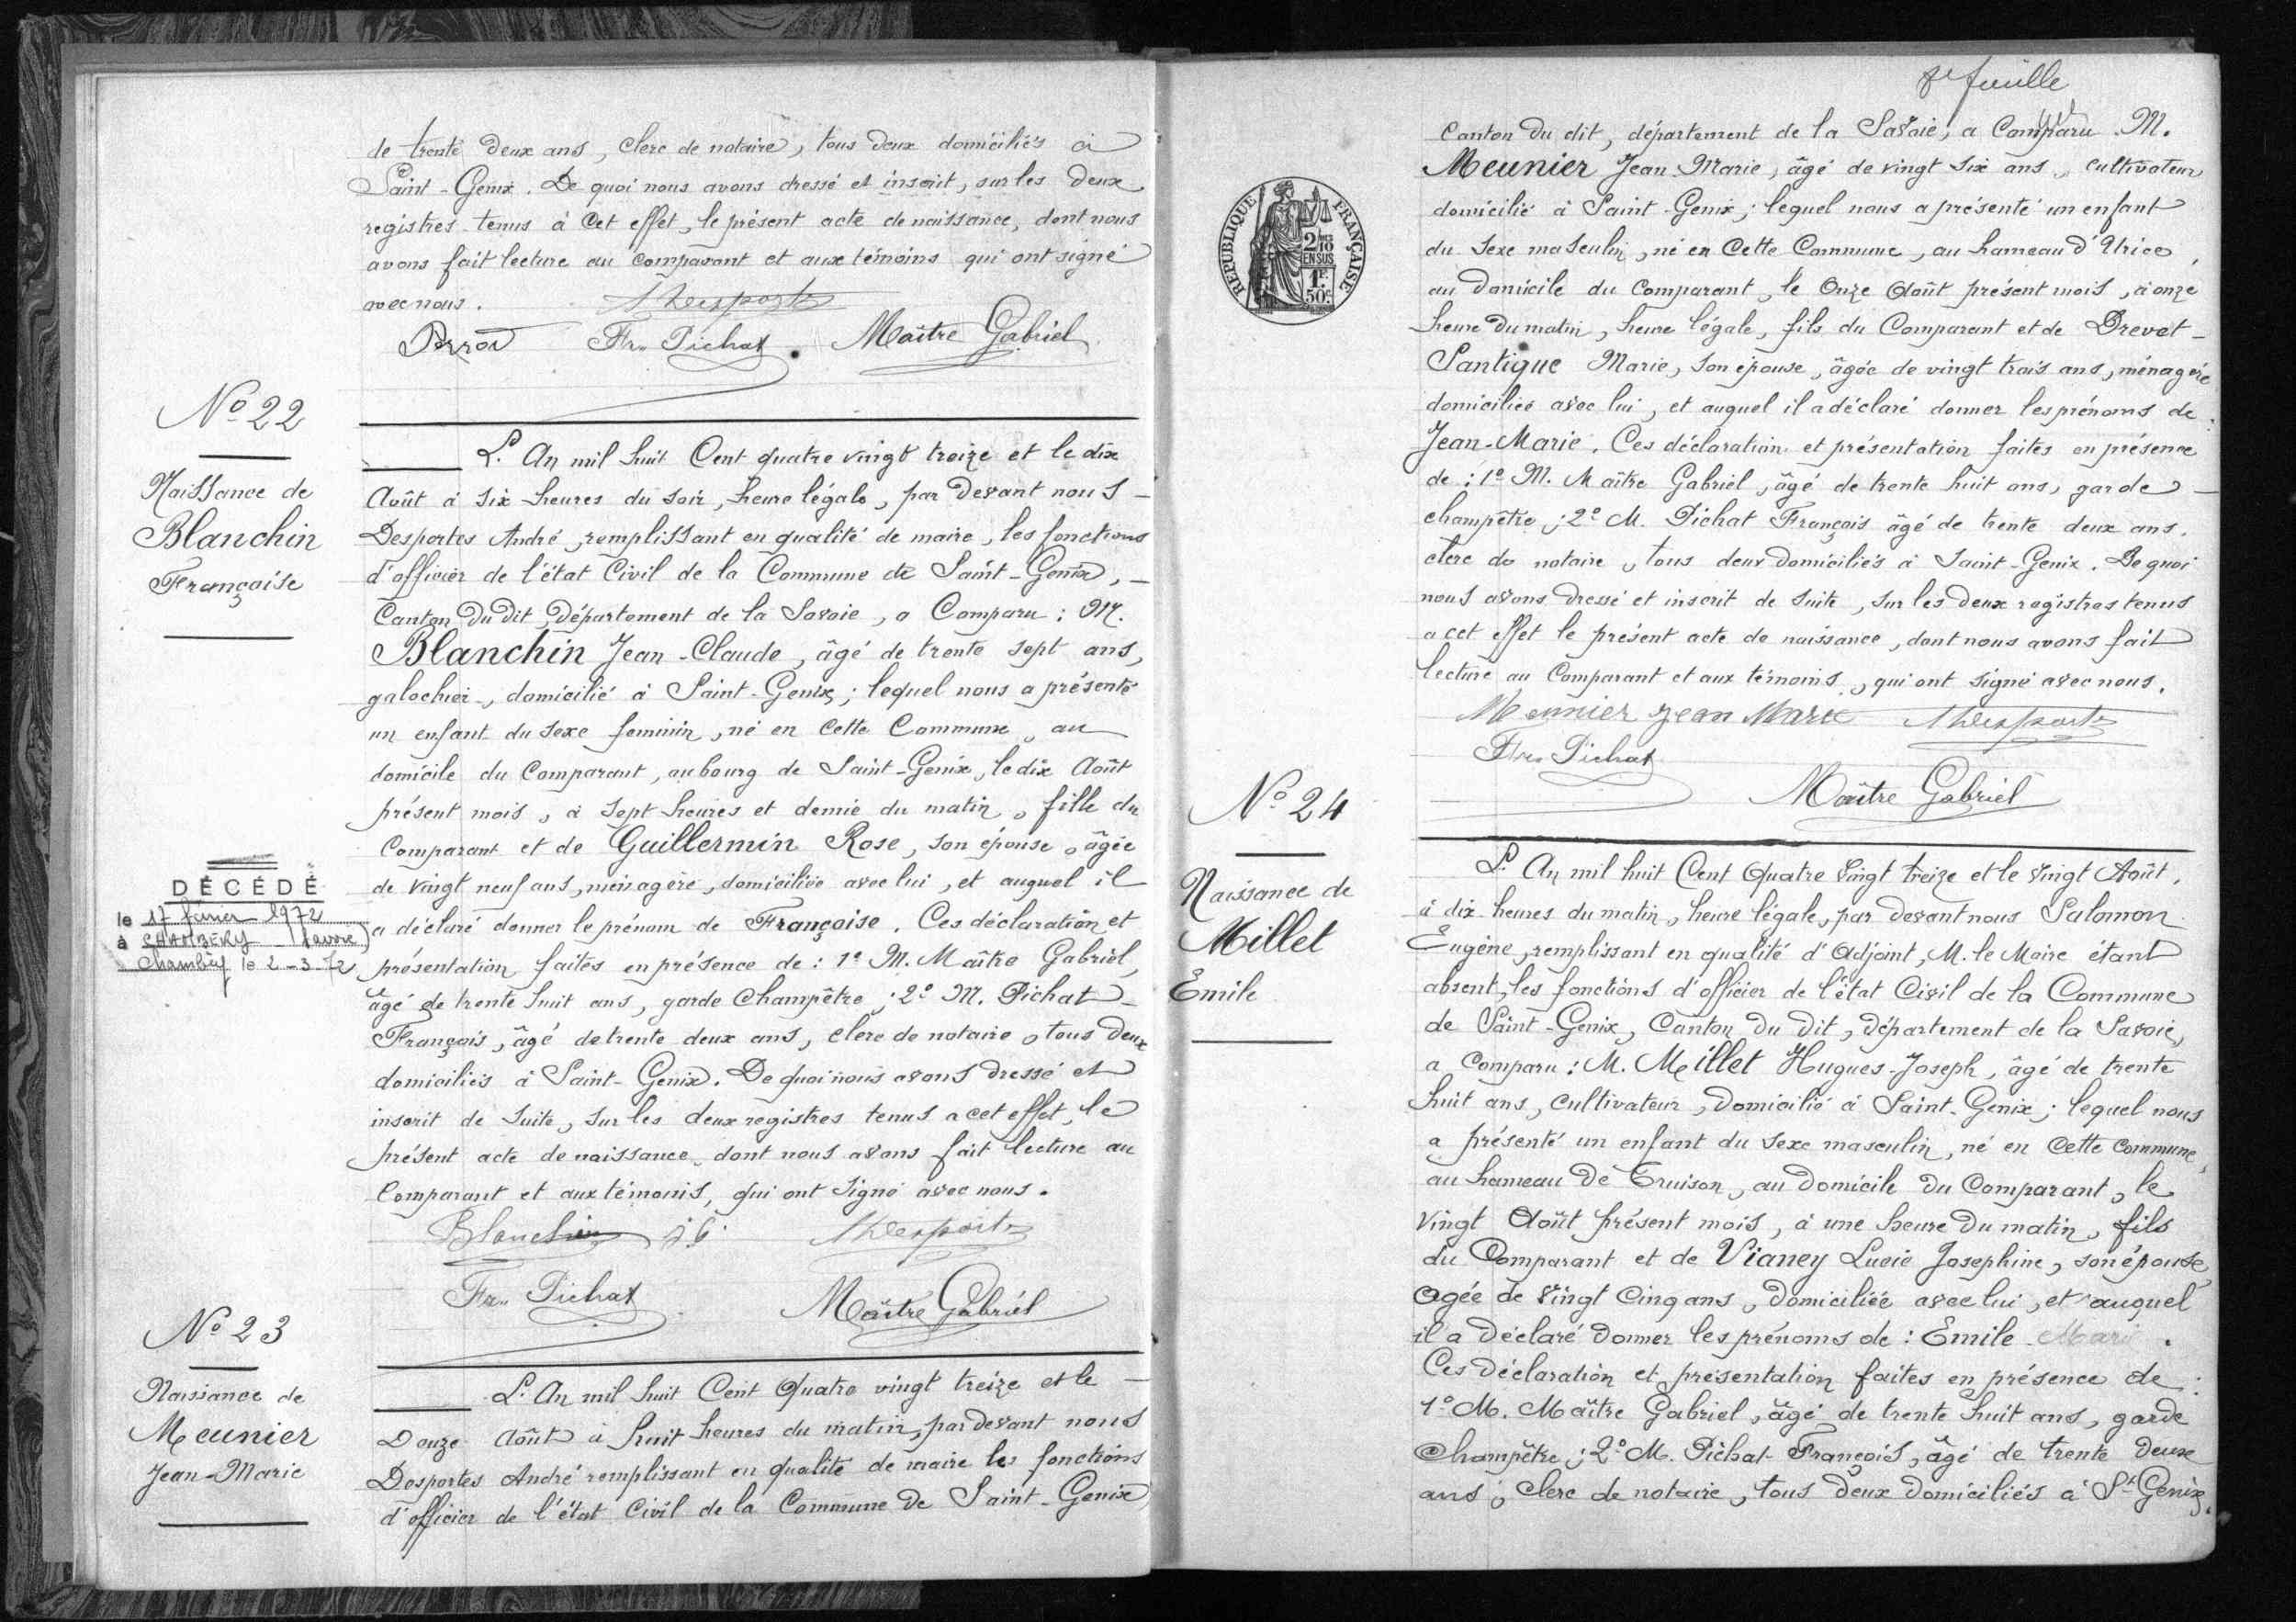 de trente deux ans, Clerc de notaire, tous deux domiciliés à
Saint-Genix. De quoi nous avons dressé et inscrit, sur les deux
registres tenus à cet effet, le présent acte de naissance, dont nous
avons fait lecture au comparant et aux témoins qui ont signé
avec nous. ADesportes
Perrod Frs Pichat Maître Gabriel
No 22
Naissance de
Blanchin
Françoise
L'An mil huit Cent quatre vingt treize et le dix
Août à six heures du soir, heure légale, par devant nous
Desportes André, remplissant en qualité de maire, les fonctions
d'officier de l'état Civil de la Commune de Saint-Genix,
Canton du dit, Département de la Savoie, a Comparu : M.
Blanchin Jean-Claude, âgé de trente sept ans,
galochier, domicilié à Saint-Genix ; lequel nous a présenté
un enfant du sexe feminin, né en cette Commune, au
domicile du Comparant, au bourg de Saint-Genix, le dix Août
présent mois, à sept heures et demie du matin, fille du
Comparant et de Guillermin Rose, son épouse, âgée
de vingt neuf ans, ménagère, domiciliée avec lui, et auquel il
a déclaré donner le prénom de Françoise. Ces déclaration et
présentation faites en présence de : 1º M. Maître Gabriel,
âgé de trente huit ans, garde champêtre ; 2º M. Pichat
François, âgé de trente deux ans, clerc de notaire, tous deux
domiciliés à Saint-Genix. De quoi nous avons dressé et
inscrit de suite, sur les deux registres tenus a cet effet, le
présent acte de naissance, dont nous avons fait lecture au
Comparant et aux témoins, qui ont signé avec nous.
Blanchin J C ADesportes
Frs Pichat Maître Gabriel
DÉCÉDÉ
le 17 février 1972
à CHAMBÉRY (Savoie)
Chambéry le 2-3-72
No 23
Naissance de
Meunier
Jean-Marie
L'An mil huit Cent Quatre vingt treize et le
Douze Août à huit heures du matin, par devant nous
Desportes André remplissant en qualité de maire les fonctions
d'officier de l'état Civil de la Commune de Saint-Genix
8e feuille
Canton du dit, département de la Savoie, a Comparu M.
Meunier Jean Marie, âgé de vingt six ans, cultivateur
domicilié à Saint-Genix ; lequel nous a présenté un enfant
du sexe masculin, né en Cette Commune, au hameau d'Urice,
au domicile du Comparant, le Onze Août présent mois, à onze
heure du matin, heure légale, fils du Comparant et de Drevet-
Santique Marie, son épouse, âgée de vingt trois ans, ménagère
domiciliée avec lui, et auquel il a déclaré donner les prénoms de :
Jean-Marie. Ces déclaration et présentation faites en présence
de : 1º M. Maître Gabriel, âgé de trente huit ans, garde
champêtre ; 2º M. Pichat François âgé de trente deux ans.
clerc de notaire, tous deux domiciliés à Saint-Genix. De quoi
nous avons dressé et inscrit de suite, sur les deux registres tenus
a cet effet le présent acte de naissance, dont nous avons fait
lecture au Comparant et aux témoins, qui ont signé avec nous.
Meunier Jean Marie ADesportes
Frs Pichat
Maître Gabriel
REPUBLIQUE FRANÇAISE
2/10
EN SUS
1F.
50c.
No 24
Naissance de
Millet
Emile
L'An mil huit Cent Quatre Vingt treize et le vingt Août,
à dix heures du matin, heure légale, par devant nous Salomon
Eugène, remplissant en qualité d'Adjoint, M. le Maire étant
absent, les fonctions d'officier de l'état Civil de la Commune
de Saint-Genix, Canton du dit, département de la Savoie,
a Comparu : M. Millet Hugues-Joseph, âgé de trente
huit ans, cultivateur, domicilié à Saint-Genix ; lequel nous
a présenté un enfant du sexe masculin, né en Cette commune,
au hameau de Truison, au domicile du Comparant, le
vingt Août présent mois, à une heure du matin, fils
du Comparant et de Vianey Lucie Josephine, son épouse
agée de vingt Cinq ans, domiciliée avec lui, et auquel
il a déclaré donner les prénoms de : Emile Marie.
Ces déclaration et présentation faites en présence de :
1º M. Maître Gabriel, âgé de trente huit ans, garde
Champêtre ; 2º M. Pichat François, âgé de trente deux
ans, Clerc de notaire, tous deux domiciliés à St Genix.